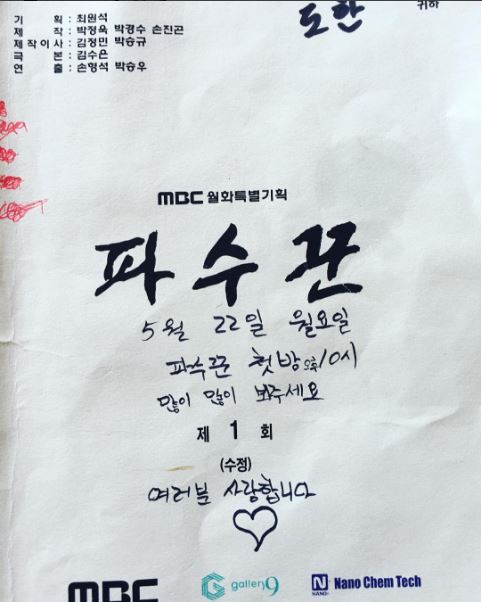 도한 귀하
기 획 : 최원석
제 작 : 박정욱 박경수 손진곤
제작이사 : 김정민 박승규
극 본 : 김수은
연 출 : 손형석 박승우
MBC 월화특별기획
파수꾼
5월 22일 월요일
파수꾼 첫방 오후 10시
많이 많이 봐주세요
제 1 회
(수정)
여러분 사랑합니다
MBC gallery9 N NANO Nano Chem Tech